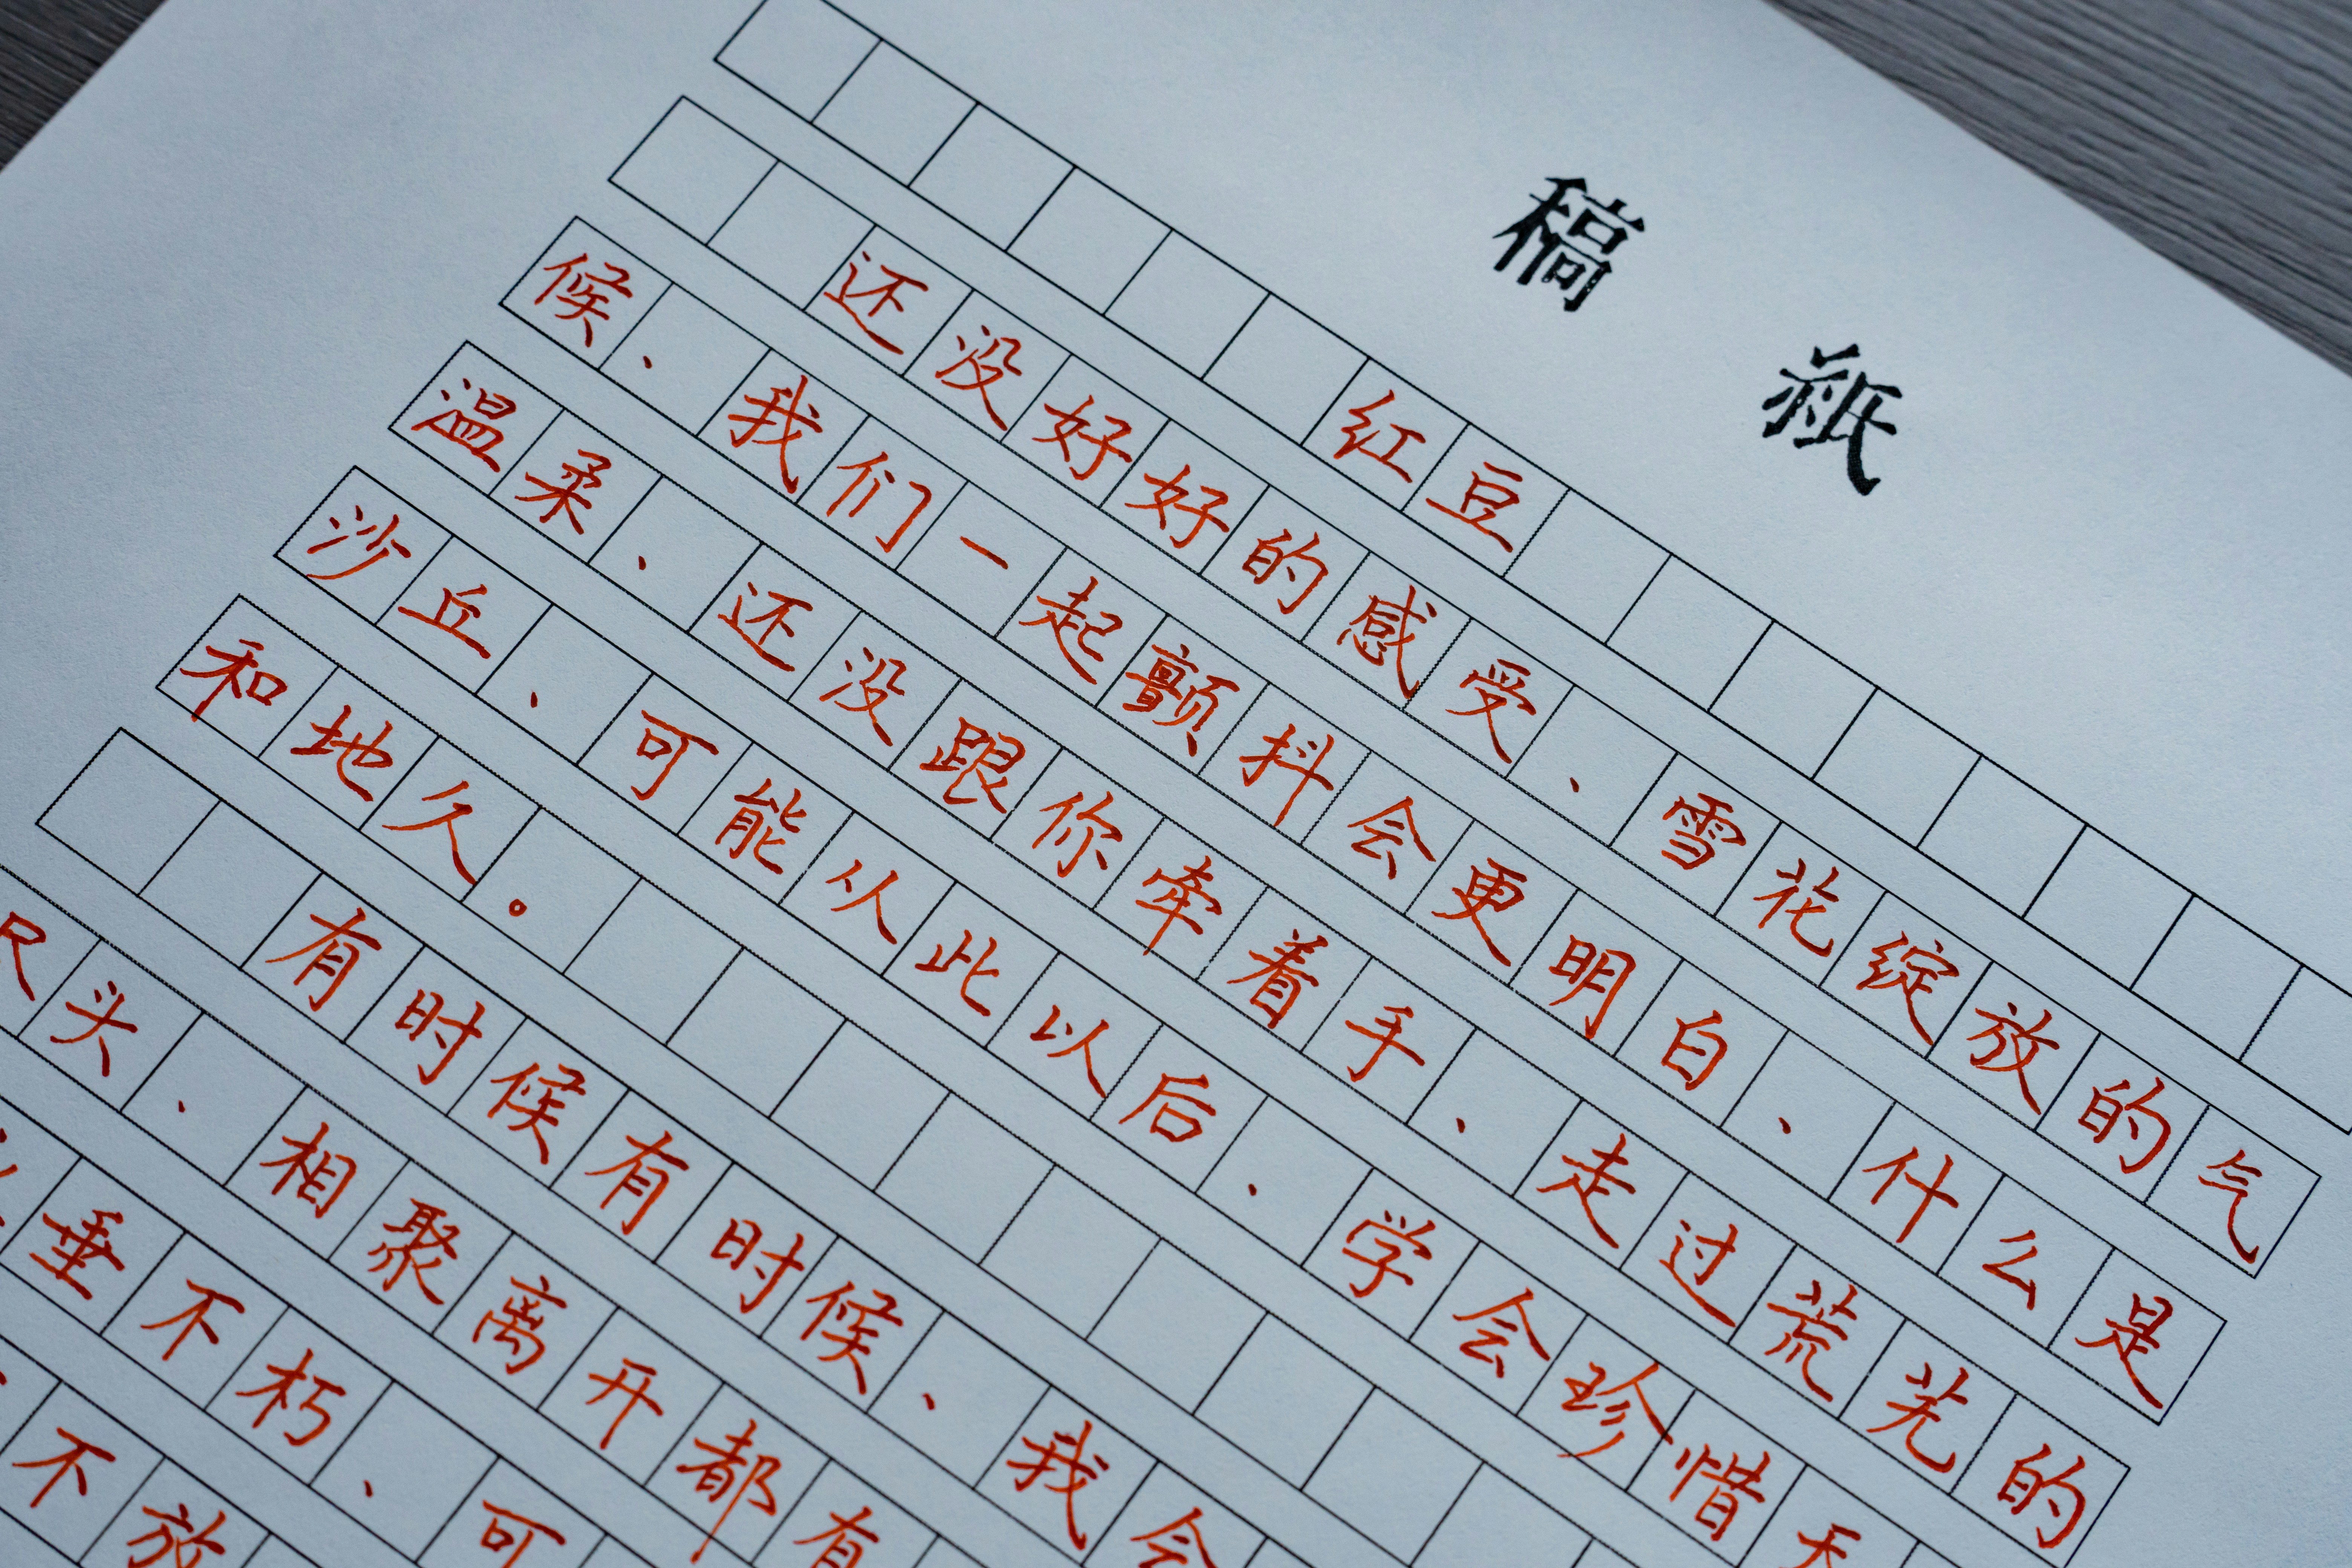 稿 纸
红豆
还没好好的感受、雪花绽放的气
候、我们一起颤抖会更明白、什么是
温柔、还没跟你牵着手、走过荒芜的
沙丘、可能从此以后、学会珍惜天
和地久。
有时候有时候、我会
尽头、相聚离开都有
垂不朽、可
不放